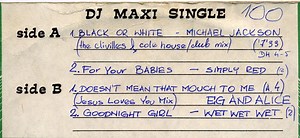 DJ MAXI SINGLE 100
side A 1. BLACK OR WHITE - MICHAEL JACKSON
(the clivillés & cole house/club mix) (7'33)
DH 4-5
2. FOR YOUR BABIES - SIMPLY RED (2)
side B 1. DOESN'T MEAN THAT MOUCH TO ME (A 4)
(JESUS LOVES YOU MIX) E.G AND ALICE
2. GOODNIGHT GIRL - WET WET WET (2)